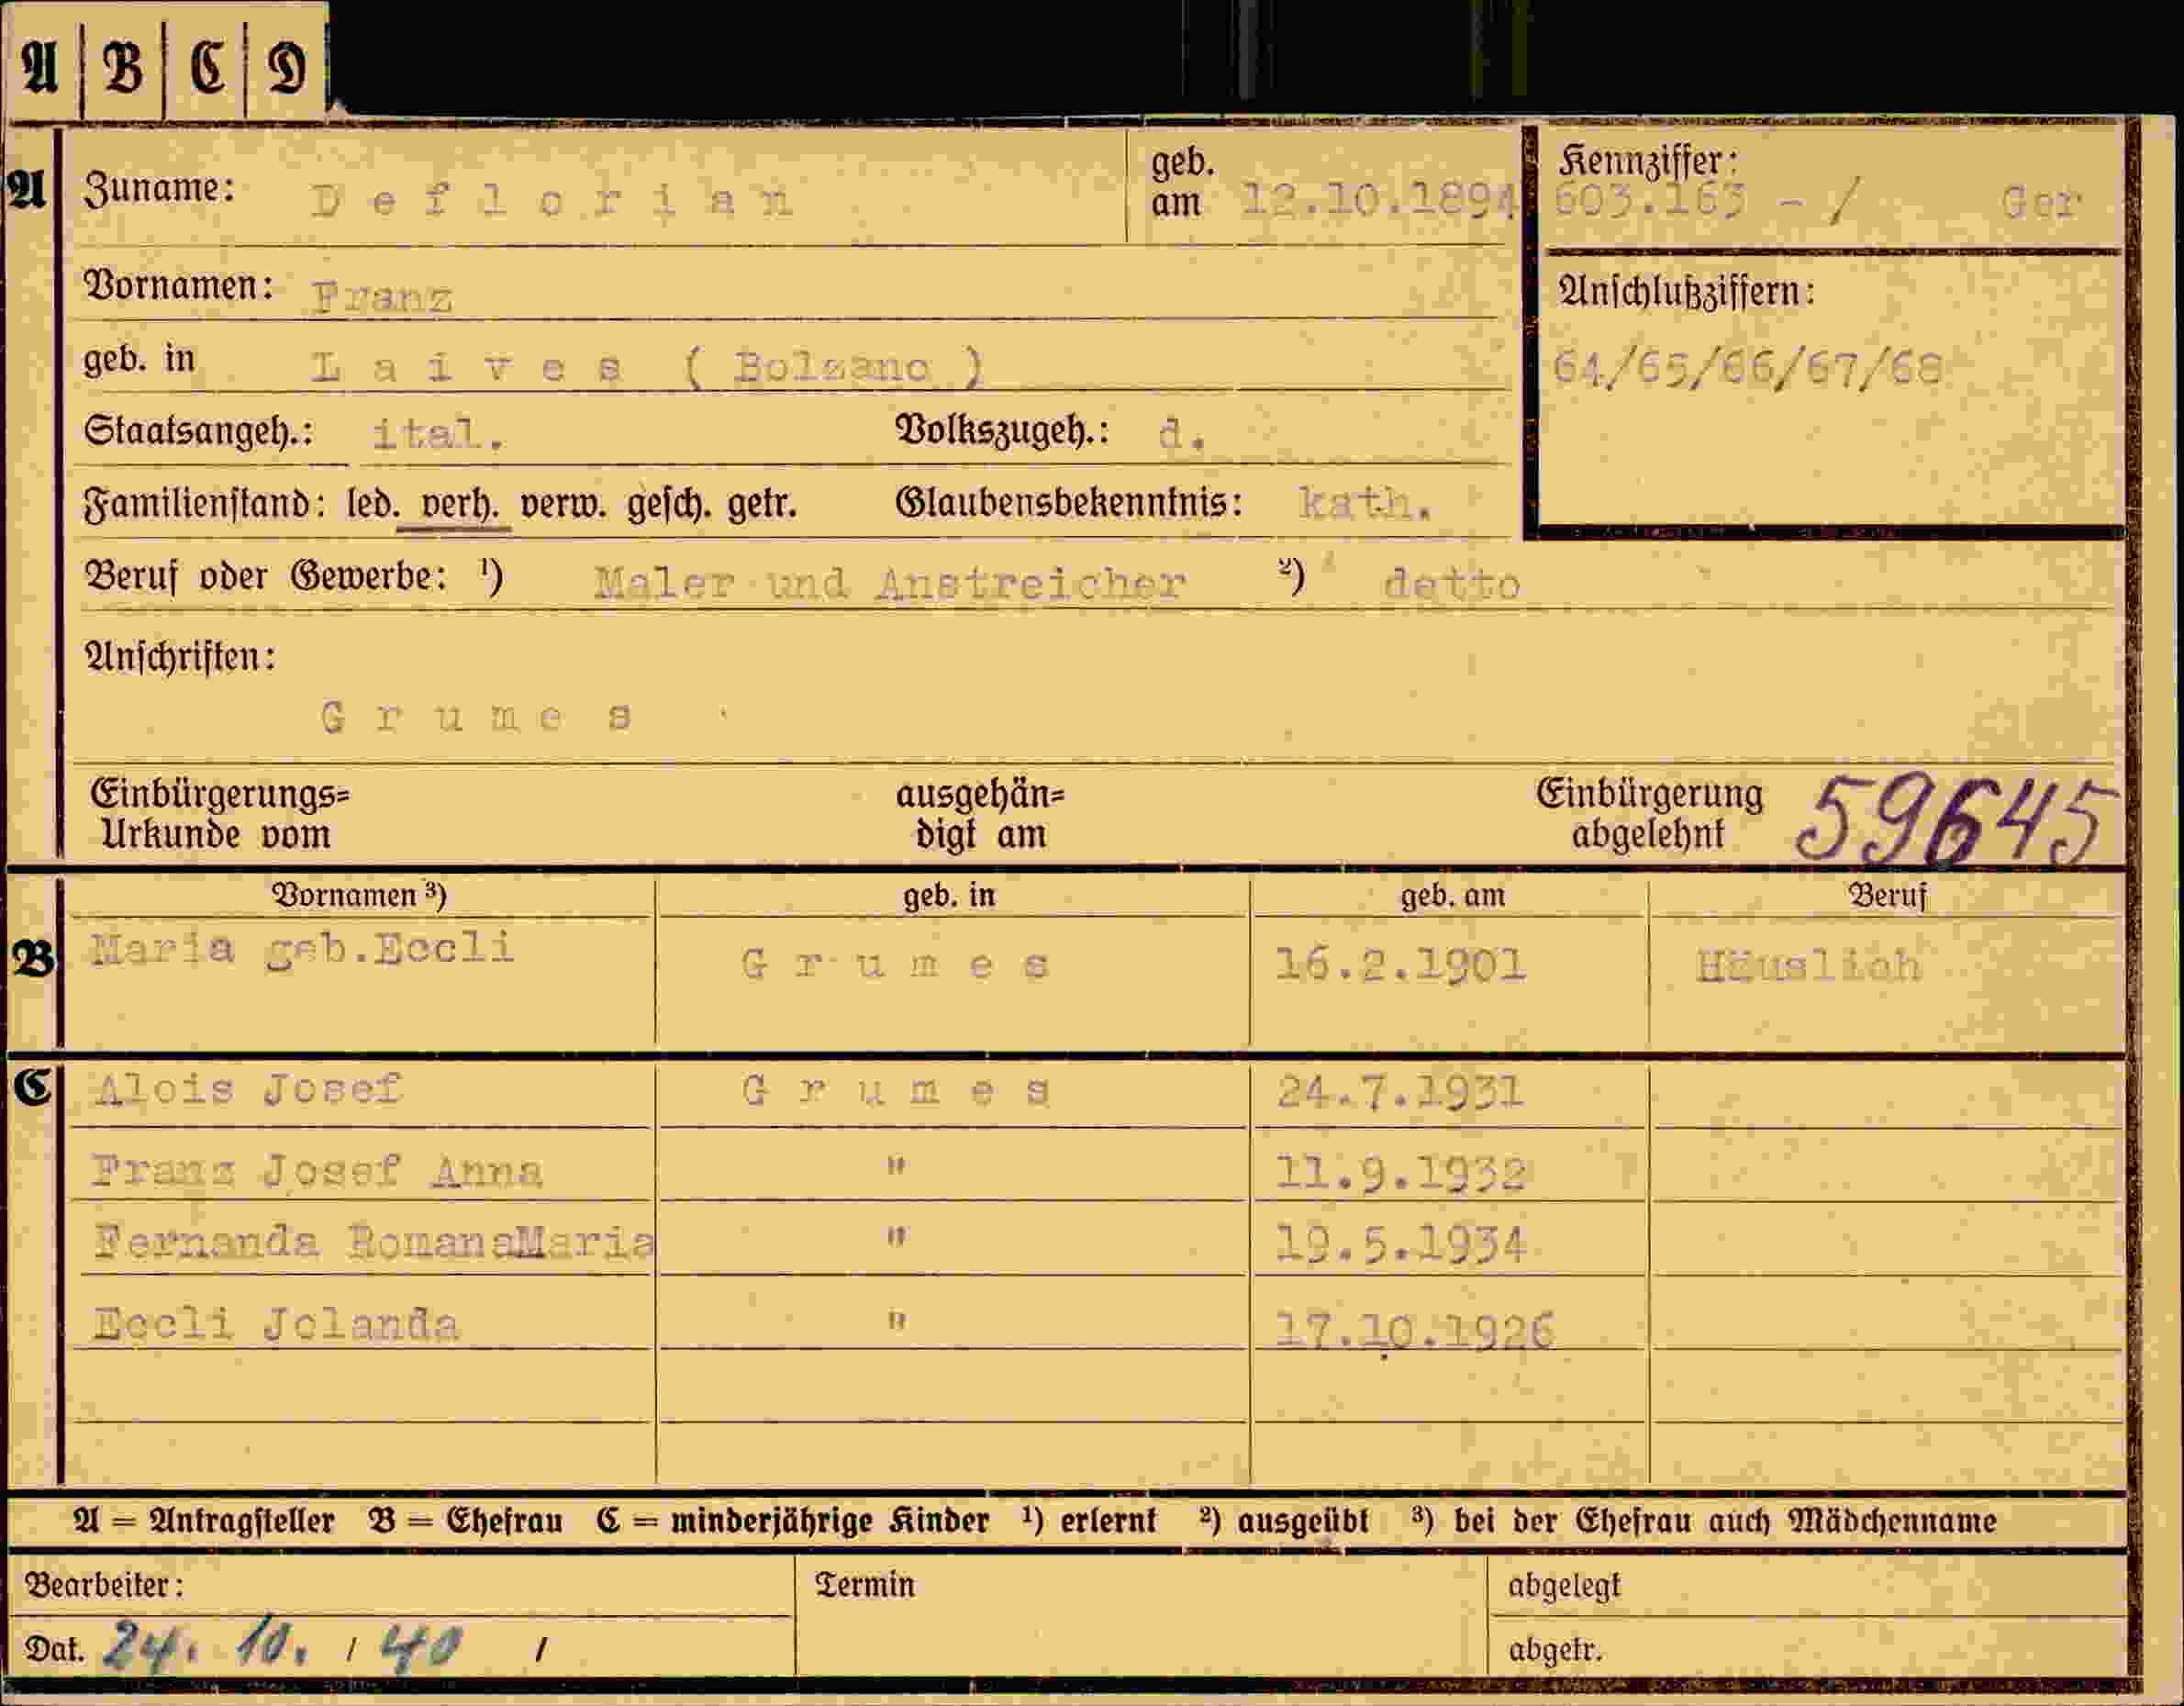 A B C D
A Zuname: Deflorian geb. am 12.10.1894 Kennziffer: 603.163 - / Ger
Vornamen: Franz Anschlußziffern:
geb. in Laives (Bolzano) 64/65/66/67/68
Staatsangeh.: ital. Volkszugeh.: d.
Familienstand: led. verh. verw. gesch. getr. Glaubensbekenntnis: kath.
Beruf oder Gewerbe: ¹) Maler und Anstreicher ²) detto
Anschriften:
Grumes
Einbürgerungs= ausgehän= Einbürgerung 59645
Urkunde vom digt am abgelehnt
Vornamen ³) geb. in geb. am Beruf
B Maria geb.Eccli Grumes 16.2.1901 Häuslich
C Alois Josef Grumes 24.7.1931
Franz Josef Anna " 11.9.1932
Fernanda RomanaMaria " 19.5.1934
Eccli Jolanda " 17.10.1926
A = Antragsteller B = Ehefrau C = minderjährige Kinder ¹) erlernt ²) ausgeübt ³) bei der Ehefrau auch Mädchenname
Bearbeiter: Termin abgelegt
Dat. 24. 10. / 40 / abgetr.